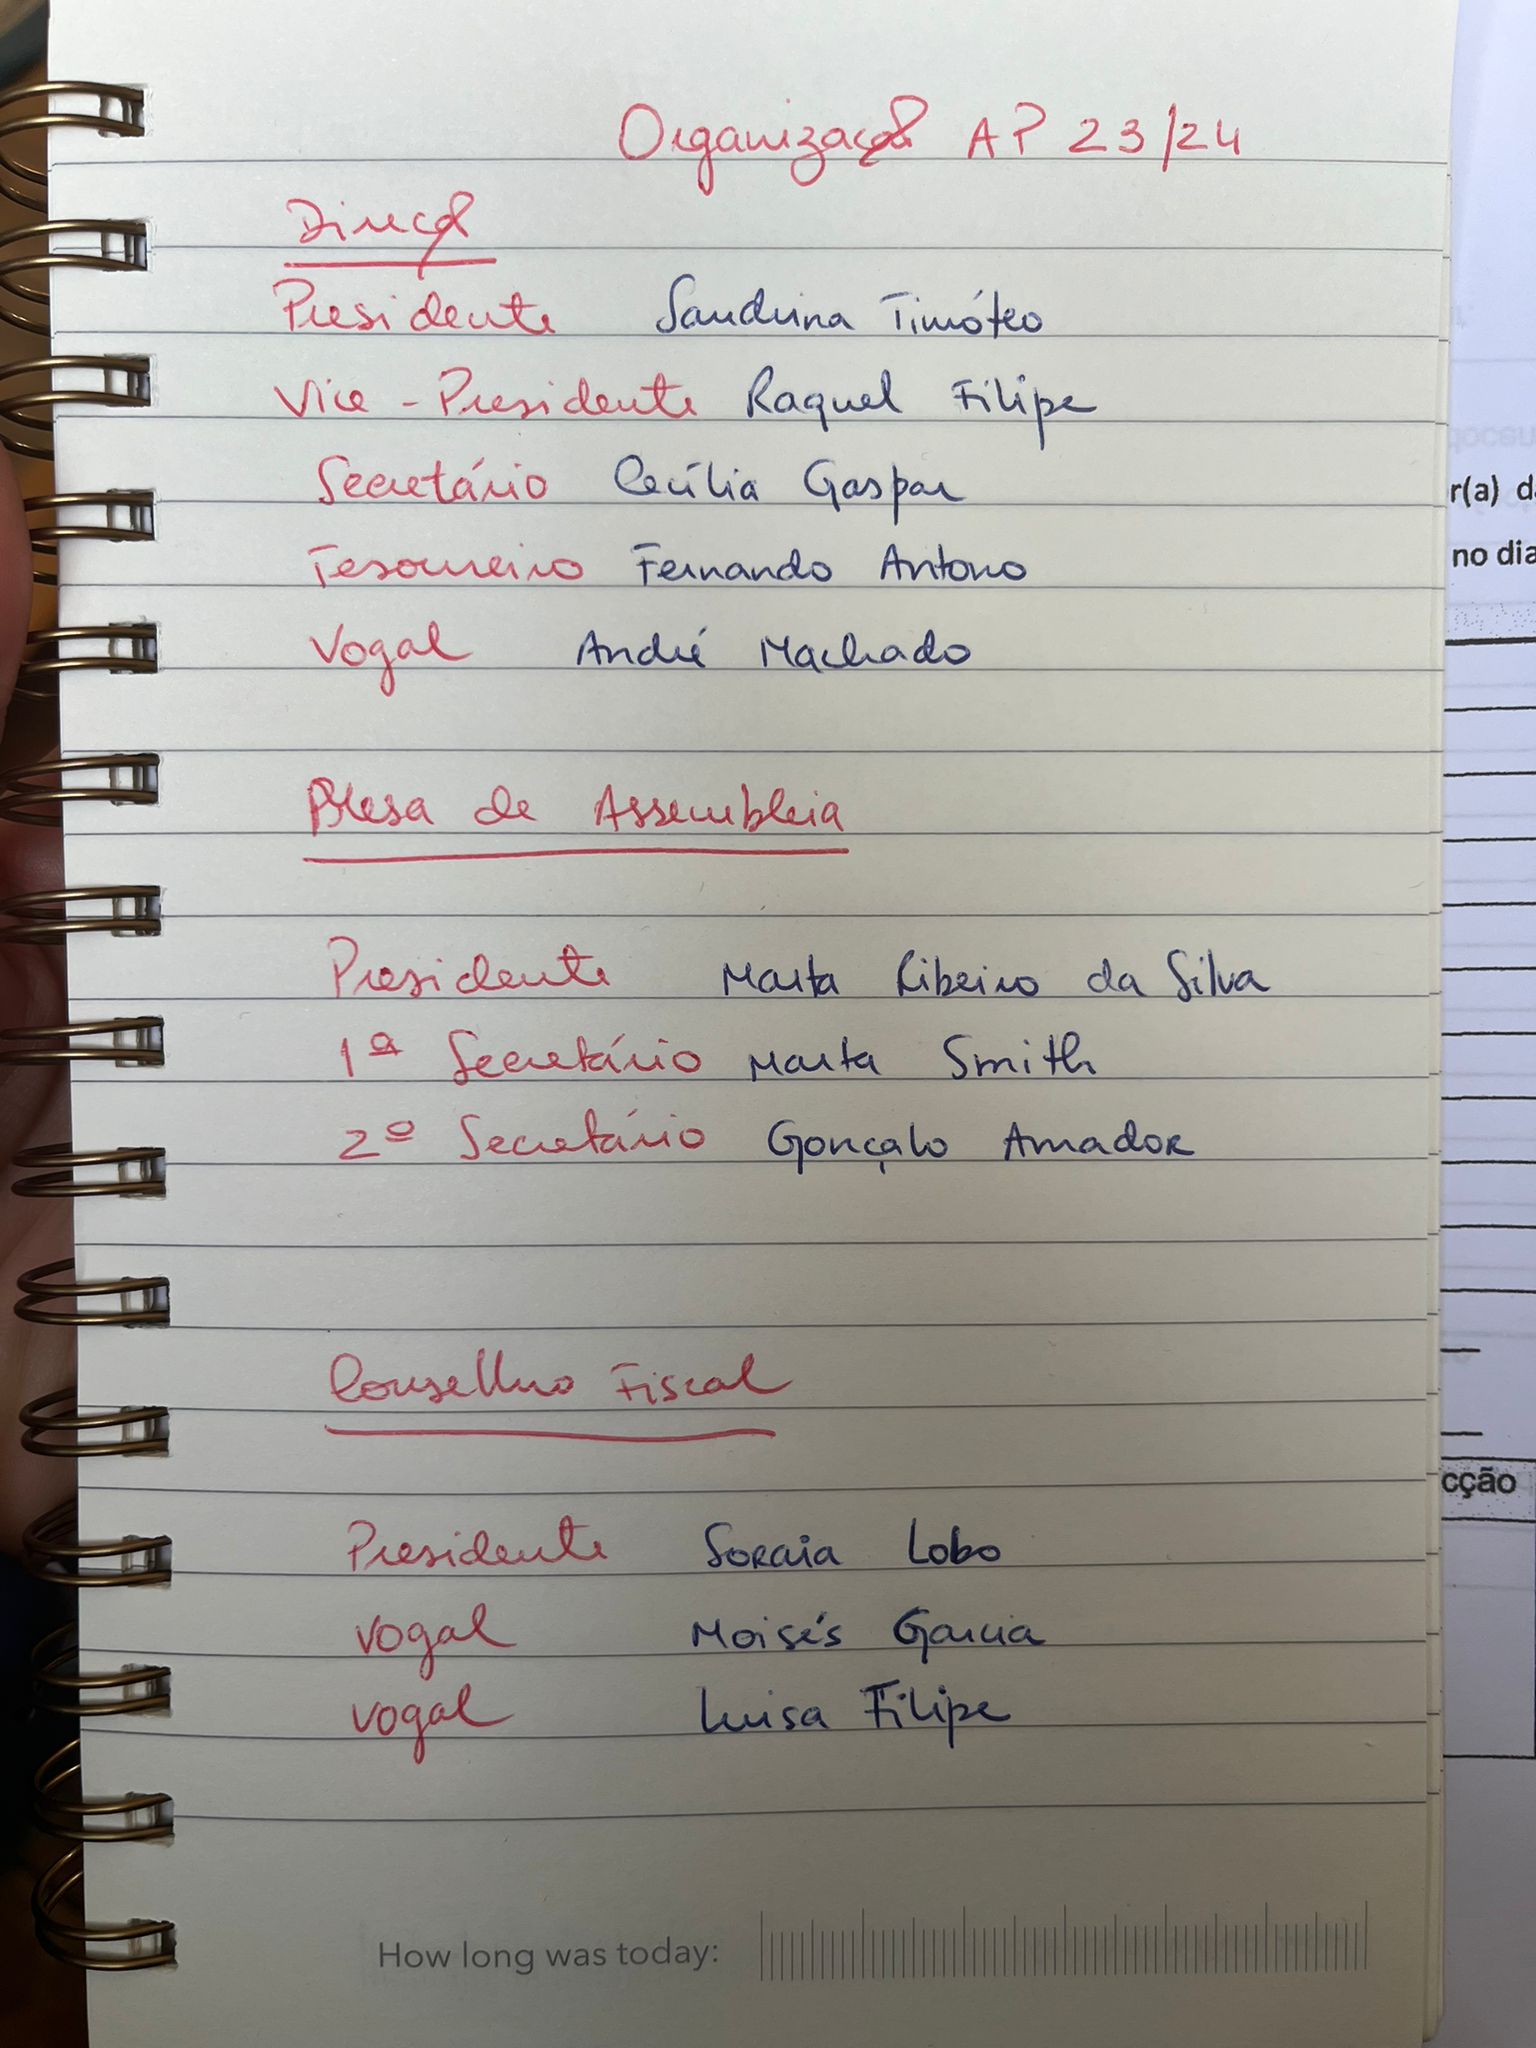 Organização AP 23/24
Direção
Presidente Sandrina Timóteo
Vice-Presidente Raquel Filipe
Secretário Cecília Gaspar
Tesoureiro Fernando Antono
Vogal André Machado
Mesa de Assembleia
Presidente Marta Ribeiro da Silva
1ª Secretário Marta Smith
2º Secretário Gonçalo Amador
Conselho Fiscal
Presidente Soraia Lobo
Vogal Moisés Garcia
Vogal Luisa Filipe
How long was today:
r(a)
no dia
cção